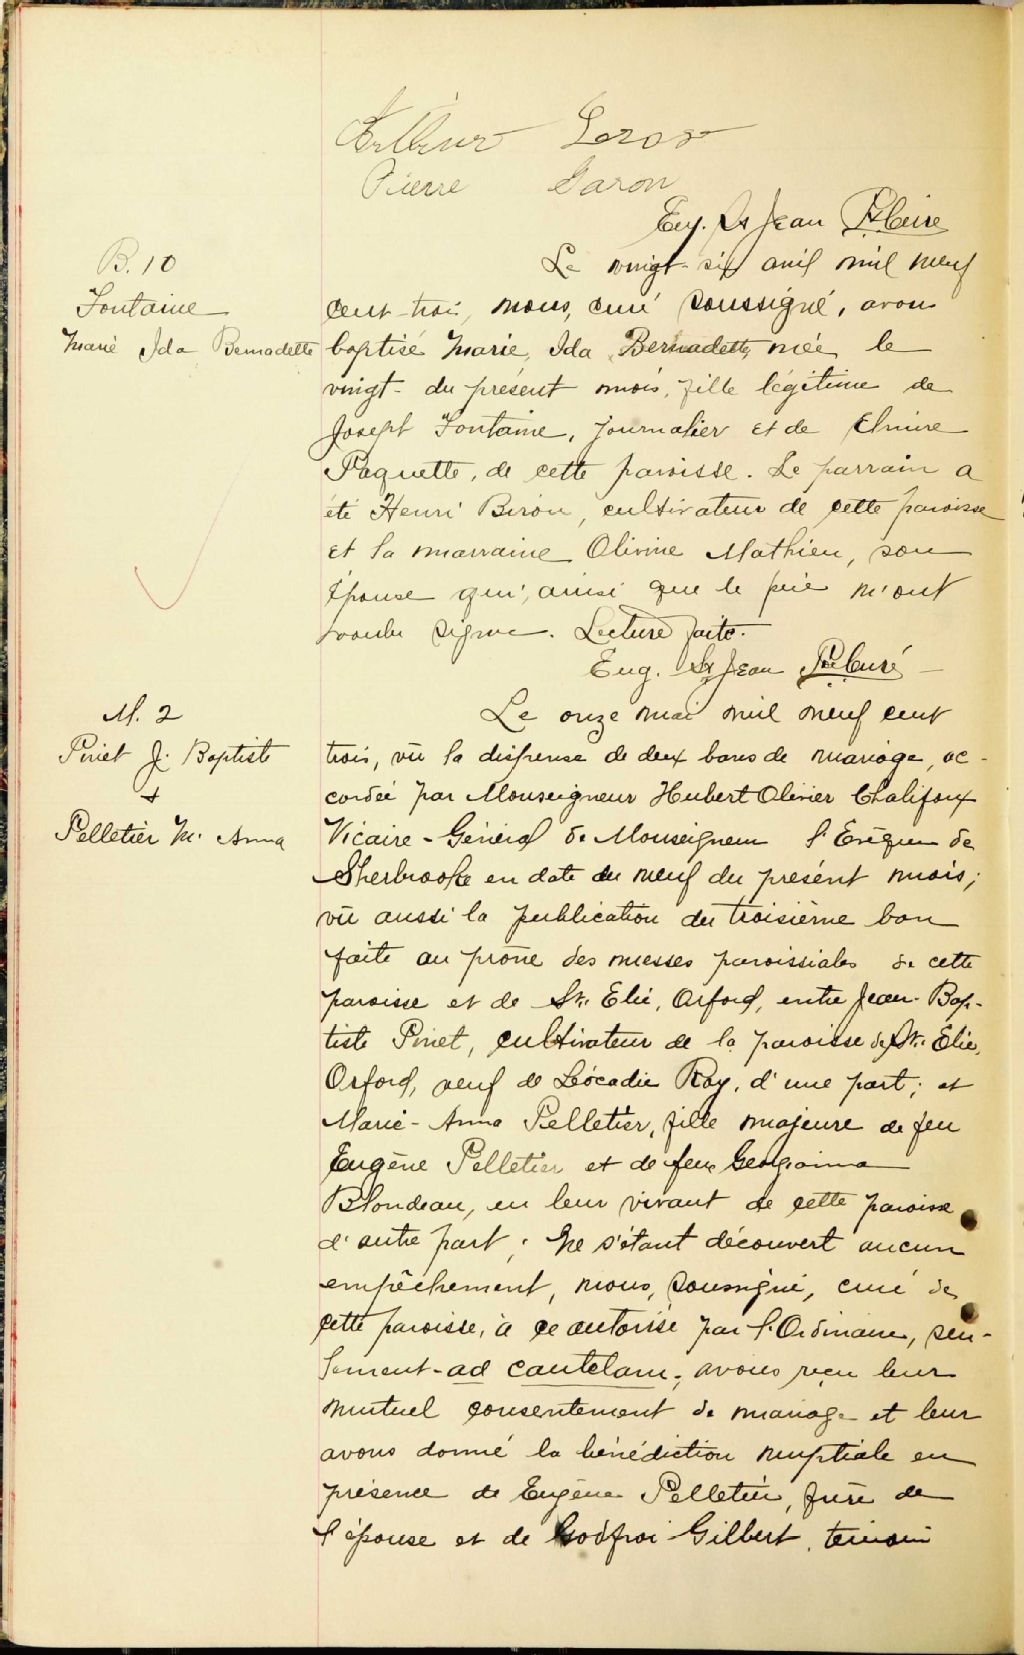 Arthur Leroy
Pierre Garon
Eug. St Jean Ptre Curé
B. 10
Fontaine
Marie Ida Bernadette
Le vingt-six avril mil neuf
cent-trois, nous, curé soussigné, avons
baptisé Marie, Ida, Bernadette, née le
vingt- du présent mois, fille légitime de
Joseph Fontaine, journalier et de Elmire
Paquette, de cette paroisse. Le parrain a
été Henri Biron, cultivateur de cette paroisse
et la marraine Olivine Mathieu, son
épouse qui, ainsi que le père n'ont
voulu signer. Lecture faite.
Eug. St Jean Ptre Curé
M. 2
Piriet J. Baptiste
+
Pelletier M. Anna
Le onze mai mil neuf cent
trois, vû la dispense de deux bans de mariage, ac-
cordée par Monseigneur Hubert Olivier Chalifoux
Vicaire-Général de Monseigneur l'Evêque de
Sherbrooke en date du neuf du présent mois;
vû aussi la publication du troisième ban
faite au prône des messes paroissiales de cette
paroisse et de St. Elie, Orford, entre Jean-Bap-
tiste Piriet, cultivateur de la paroisse de St. Elie,
Orford, veuf de Léocadie Roy, d'une part; et
Marie-Anna Pelletier, fille majeure de feu
Eugène Pelletier et de feue Georgianna
Blondeau, en leur vivant de cette paroisse
d'autre part; Ne s'étant découvert aucun
empêchement, nous, soussigné, curé de
cette paroisse, à ce autorisé par l'Ordinaire, seu-
lement-ad cautelam-, avons reçu leur
mutuel consentement de mariage et leur
avons donné la bénédiction nuptiale en
présence de Eugène Pelletier, frère de
l'épouse et de Godfroi Gilbert, témoin